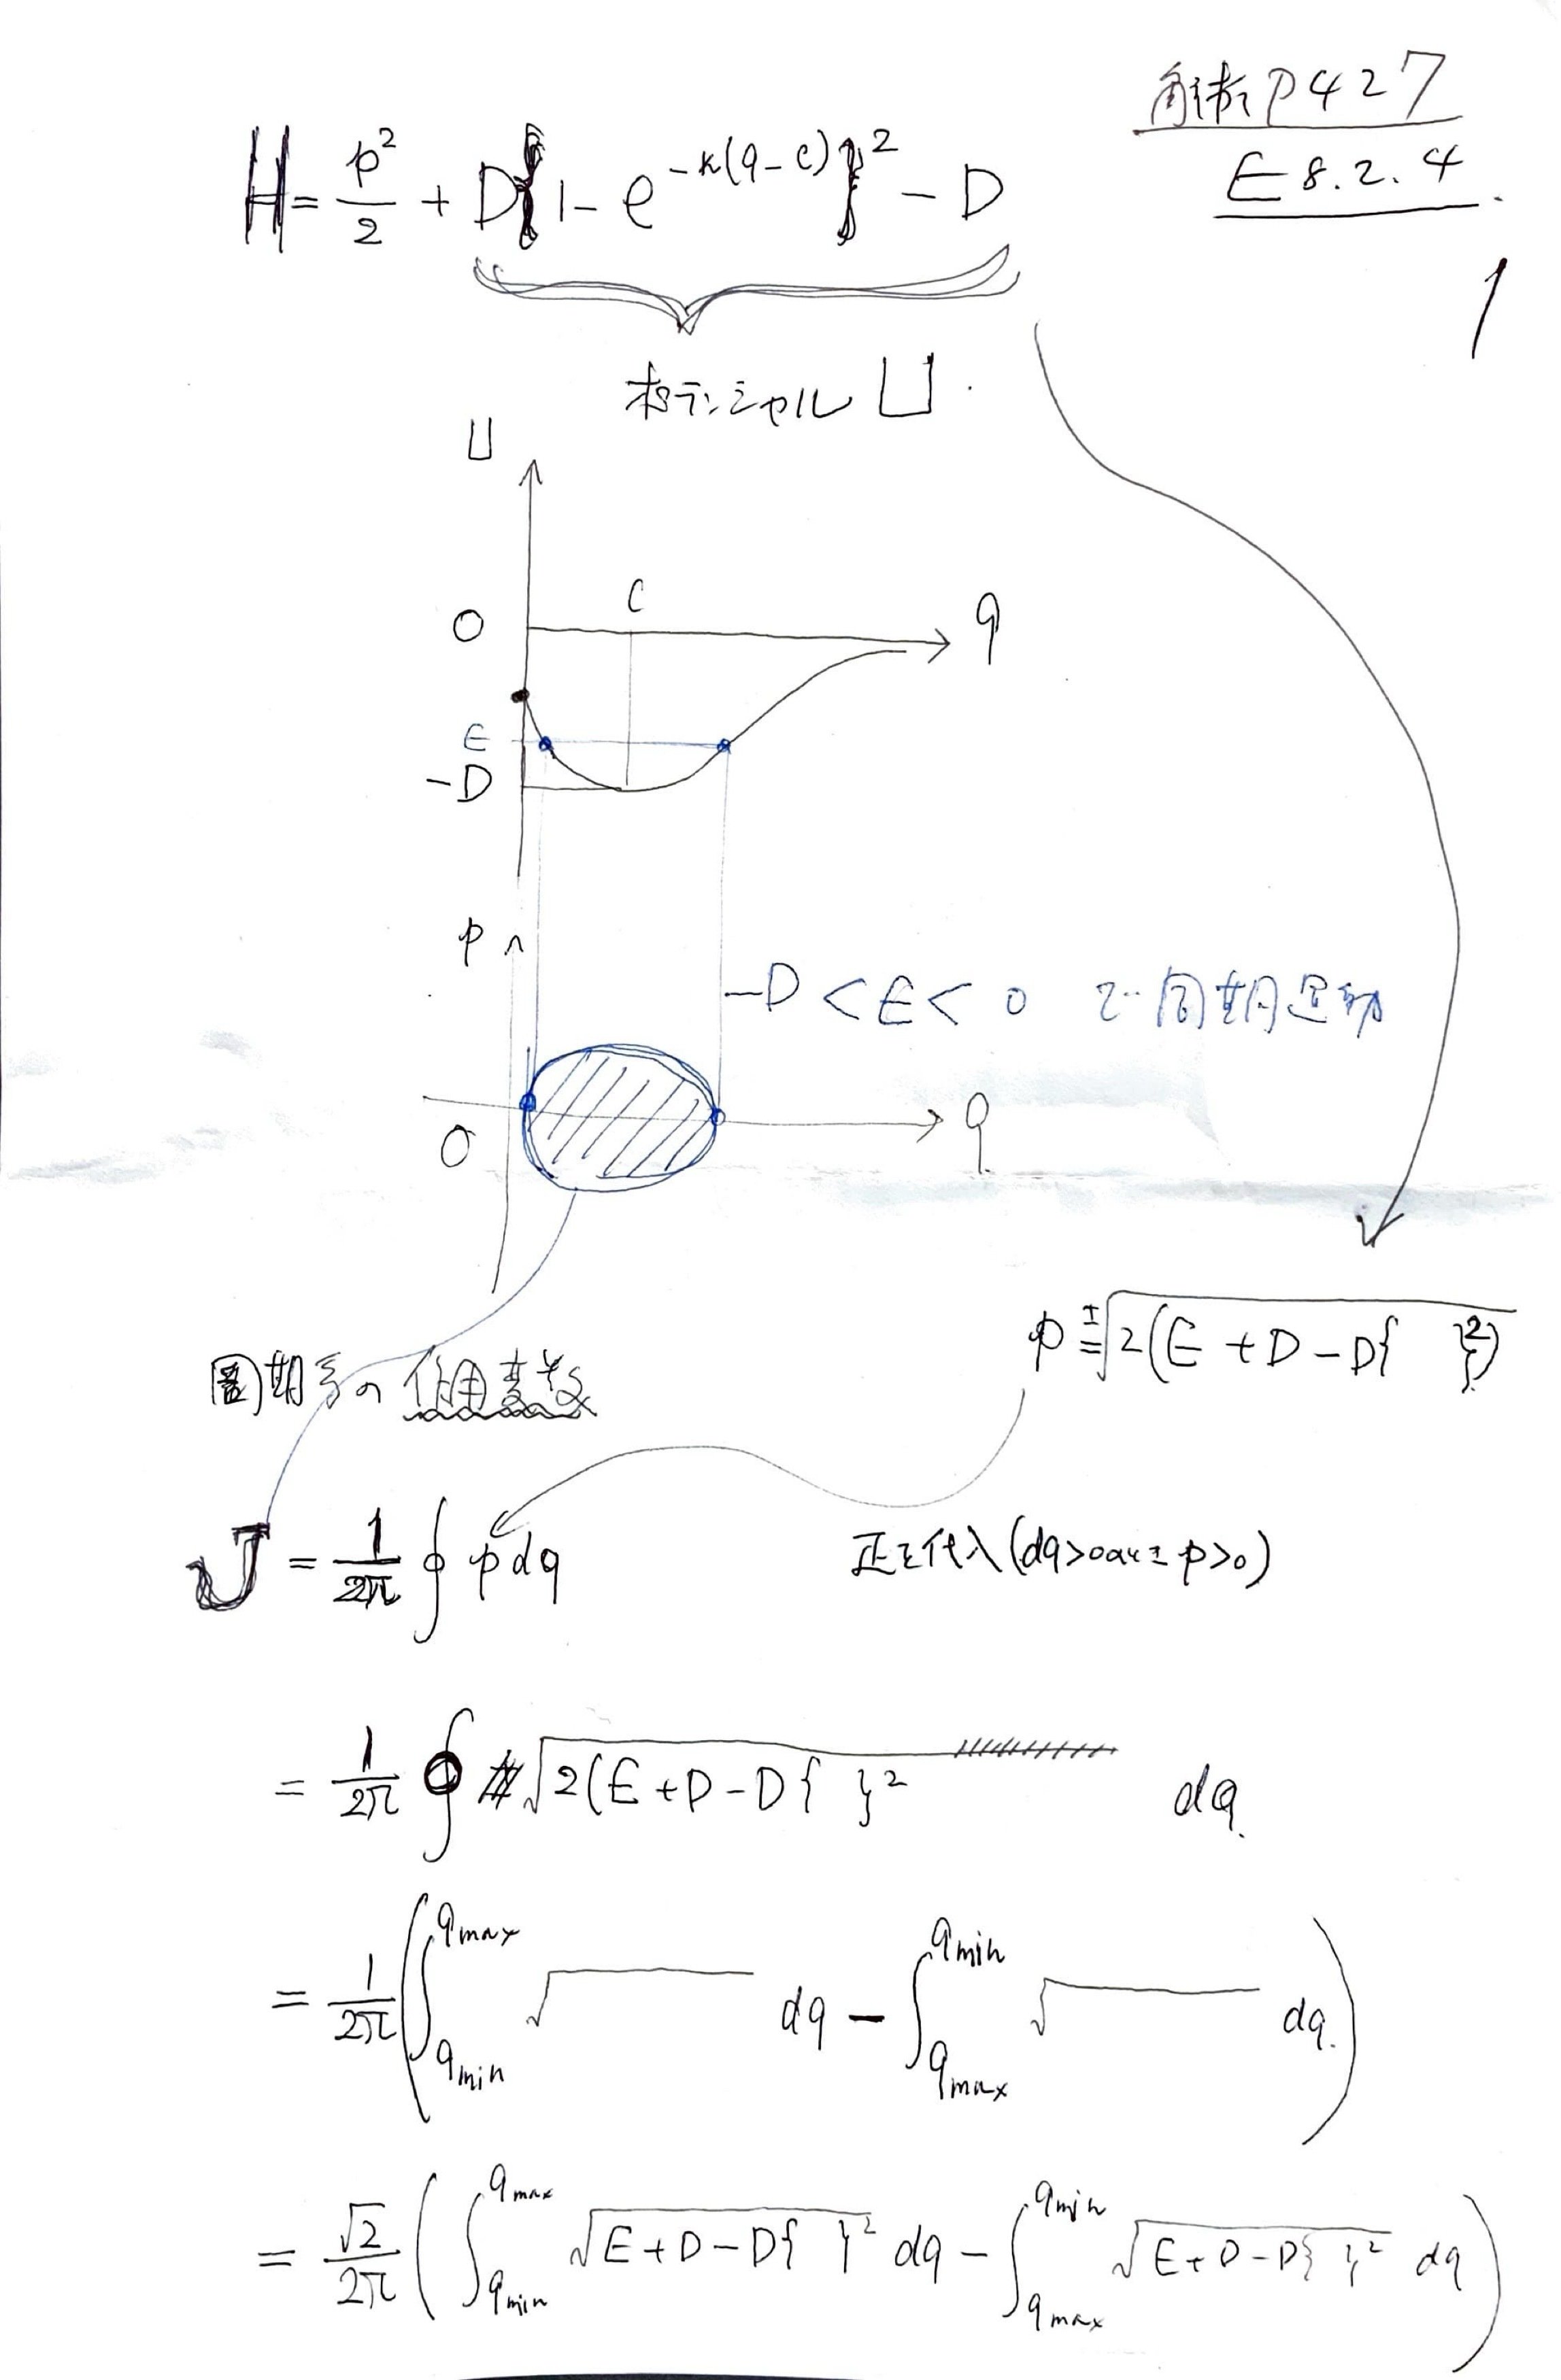 解析 P427
E 8.2.4
H = p²/2 + D{1 - e^{-κ(q-c)}}² - D
1
ポテンシャル U
U
0 c q
E
-D
p
-D < E < 0 で周期運動
0 q
p = ±√2(E + D - D{ }²)
周期系の作用変数
J = 1/2π ∮ p dq 正を代入 (dq>0のとき p>0)
= 1/2π ∮ √2(E + D - D{ }² dq
= 1/2π ( ∫_{qmin}^{qmax} √ dq - ∫_{qmax}^{qmin} √ dq )
= √2/2π ( ∫_{qmin}^{qmax} √E + D - D{ }² dq - ∫_{qmax}^{qmin} √E + D - D{ }² dq )